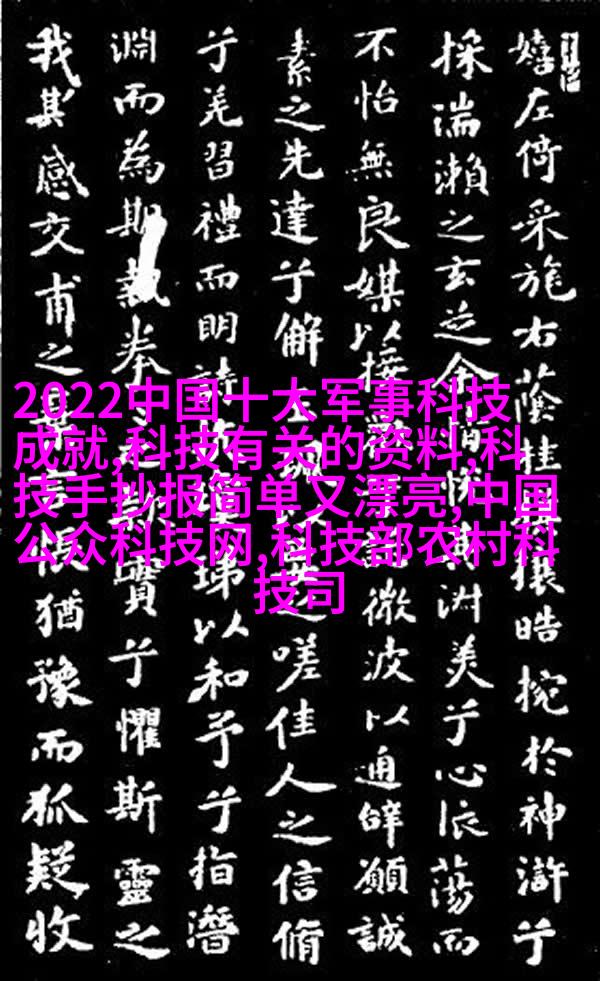 嬉左倚采旄右蔭桂攘皓捥於神滸兮
採湍瀨之玄芝余情悅淑美兮心依蕩而
不怡無良媒以接微波以通辭願誠
素之先達兮解以要之嗟佳人之信脩
兮羌習禮而明詩珶以和予兮指潛
淵而為期執拳之實兮懼斯靈之
我其感交甫之棄言悵猶豫而狐疑收
2022中国十大军事科技
成就,科技有关的资料,科
技手抄报简单又漂亮,中国
公众科技网,科技部农村科
技司